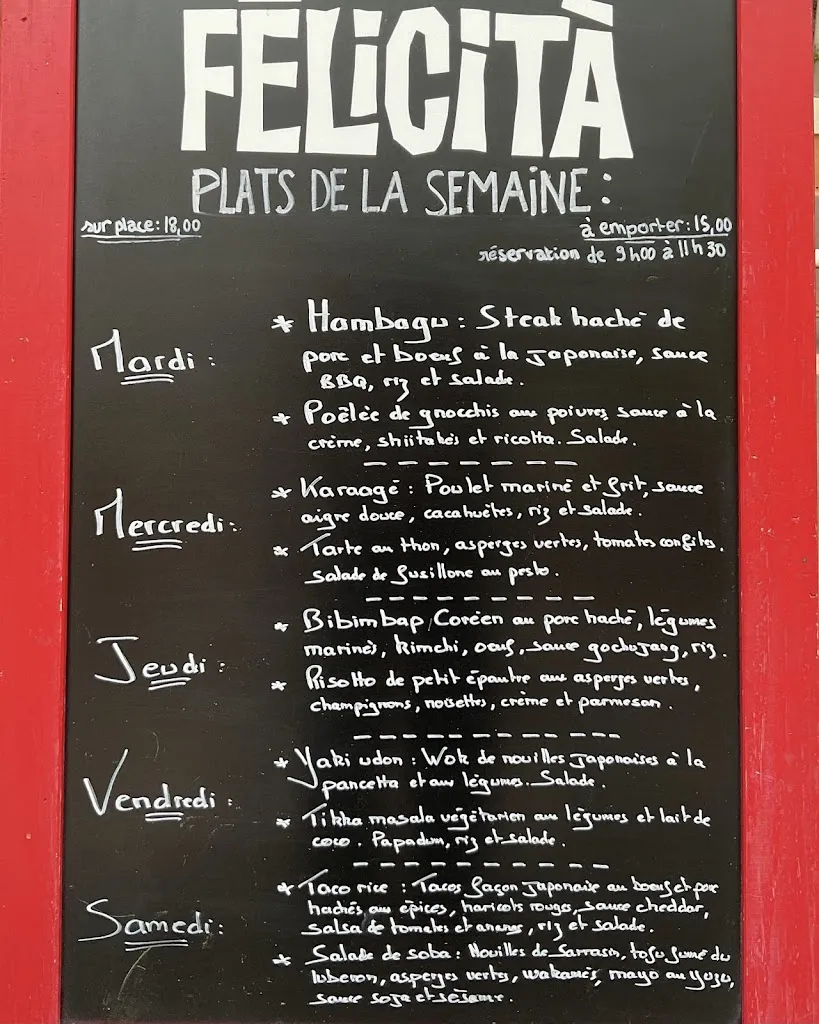 FÉLICITÀ
PLATS DE LA SEMAINE :
sur place : 18,00
à emporter : 15,00
réservation de 9h00 à 11h30
Mardi :
* Hambagu : Steak haché de
porc et boeuf à la Japonaise, sauce
BBQ, riz et salade.
* Poêlée de gnocchis aux poivres sauce à la
crème, shiitakés et ricotta. Salade.
Mercredi :
* Karaagé : Poulet mariné et frit, sauce
aigre douce, cacahuètes, riz et salade.
* Tarte au thon, asperges vertes, tomates confites.
Salade de fusillone au pesto.
Jeudi :
* Bibimbap Coréen au porc haché, légumes
marinés, kimchi, oeuf, sauce gochujang, riz.
* Risotto de petit épautre aux asperges vertes,
champignons, noisettes, crème et parmesan.
Vendredi :
* Yaki udon : Wok de nouilles Japonaises à la
pancetta et aux légumes. Salade.
* Tikka masala végétarien aux légumes et lait de
coco. Papadum, riz et salade.
Samedi :
* Taco rice : Tacos façon Japonaise au boeuf et porc
hachés aux épices, haricots rouges, sauce cheddar,
salsa de tomates et ananas, riz et salade.
* Salade de soba : Nouilles de Sarrasin, tofu fumé du
luberon, asperges vertes, wakamés, mayo au yuzu,
sauce soja et sésame.